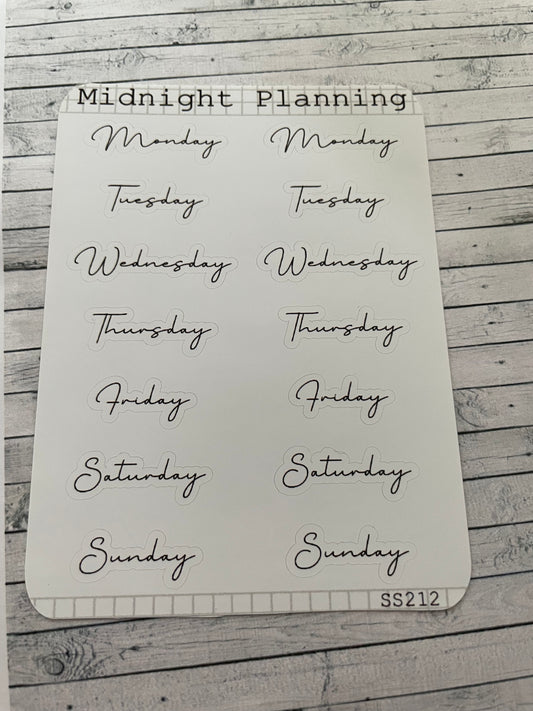 Midnight Planning
Monday Monday
Tuesday Tuesday
Wednesday Wednesday
Thursday Thursday
Friday Friday
Saturday Saturday
Sunday Sunday
SS212